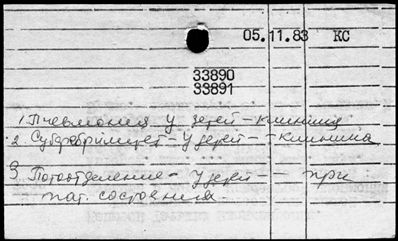 05.11.83 КС
33890
33891
1. Пневмония у детей - клиника
2. Субфебрилитет - у детей - - клиника
3. Потоотделение - у детей - - при
пат. состояния.